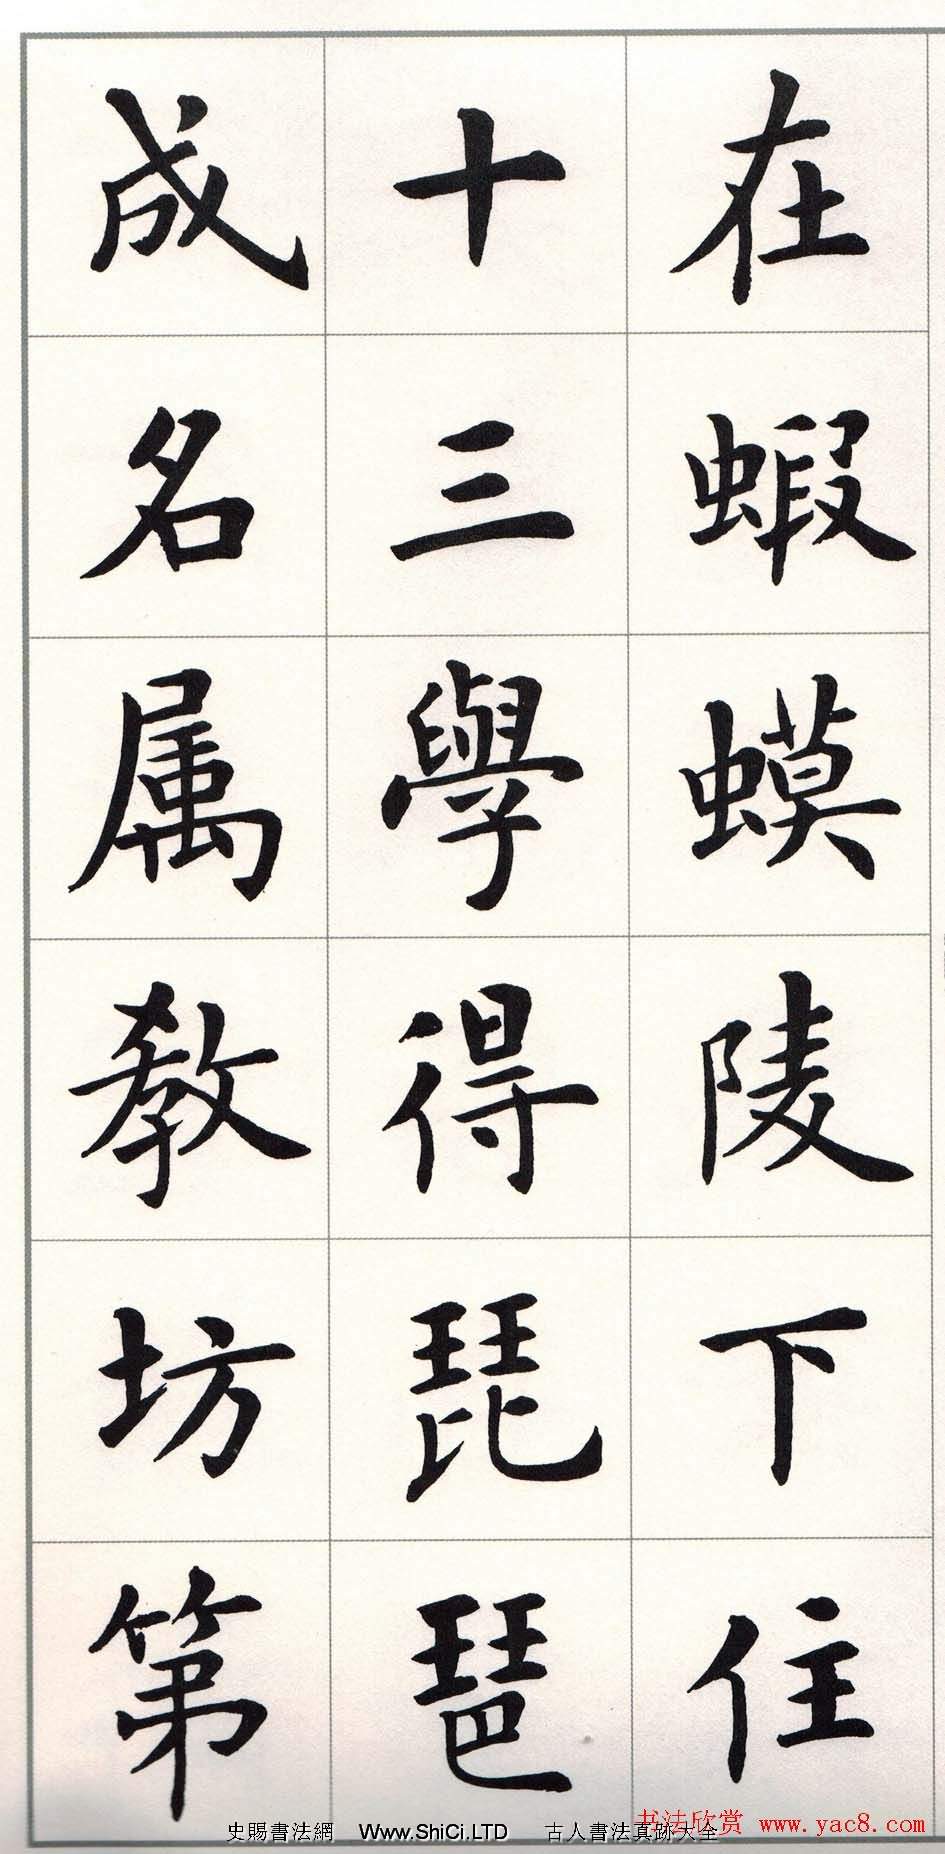 在蝦蟆陵下住
十三學得琵琶
成名属教坊第
史賜書法網 Www.ShiCi.LTD 古人書法真跡大全
书法欣赏 www.yac8.com